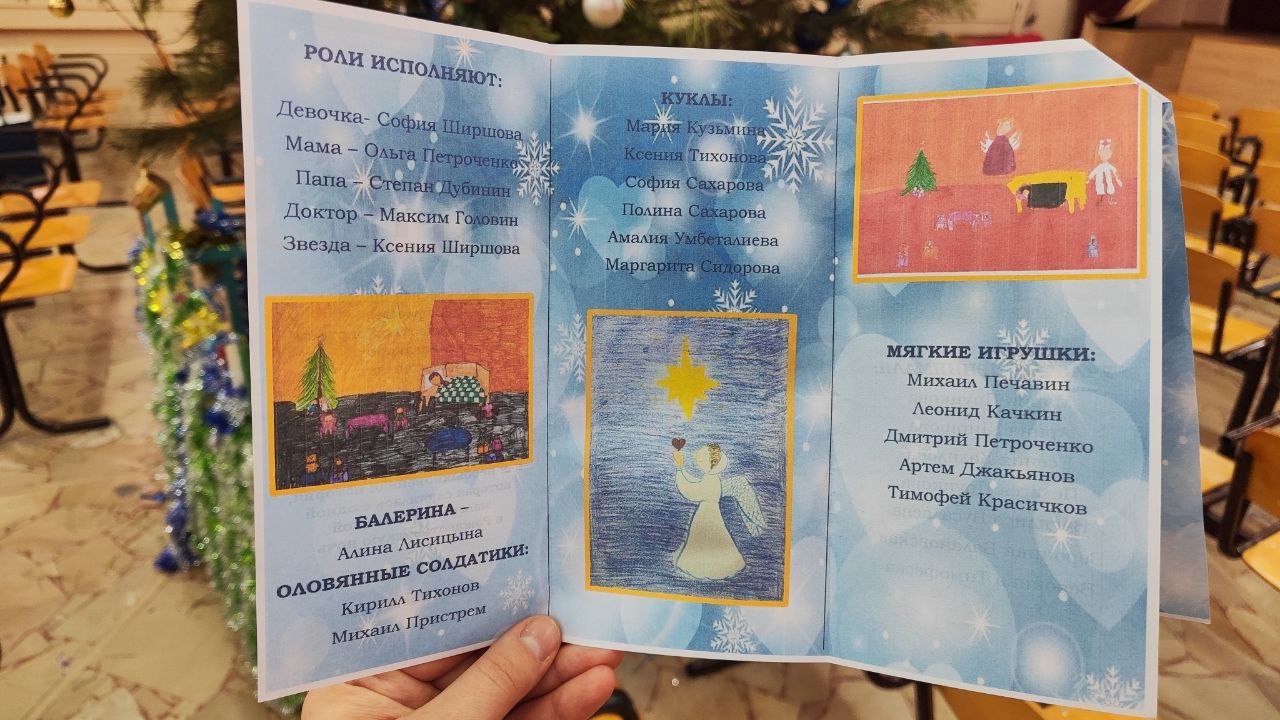 РОЛИ ИСПОЛНЯЮТ:
Девочка- София Ширшова
Мама – Ольга Петроченко
Папа – Степан Дубинин
Доктор – Максим Головин
Звезда – Ксения Ширшова
БАЛЕРИНА –
Алина Лисицына
ОЛОВЯННЫЕ СОЛДАТИКИ:
Кирилл Тихонов
Михаил Пристрем
КУКЛЫ:
Мария Кузьмина
Ксения Тихонова
София Сахарова
Полина Сахарова
Амалия Умбеталиева
Маргарита Сидорова
МЯГКИЕ ИГРУШКИ:
Михаил Печавин
Леонид Качкин
Дмитрий Петроченко
Артем Джакьянов
Тимофей Красичков